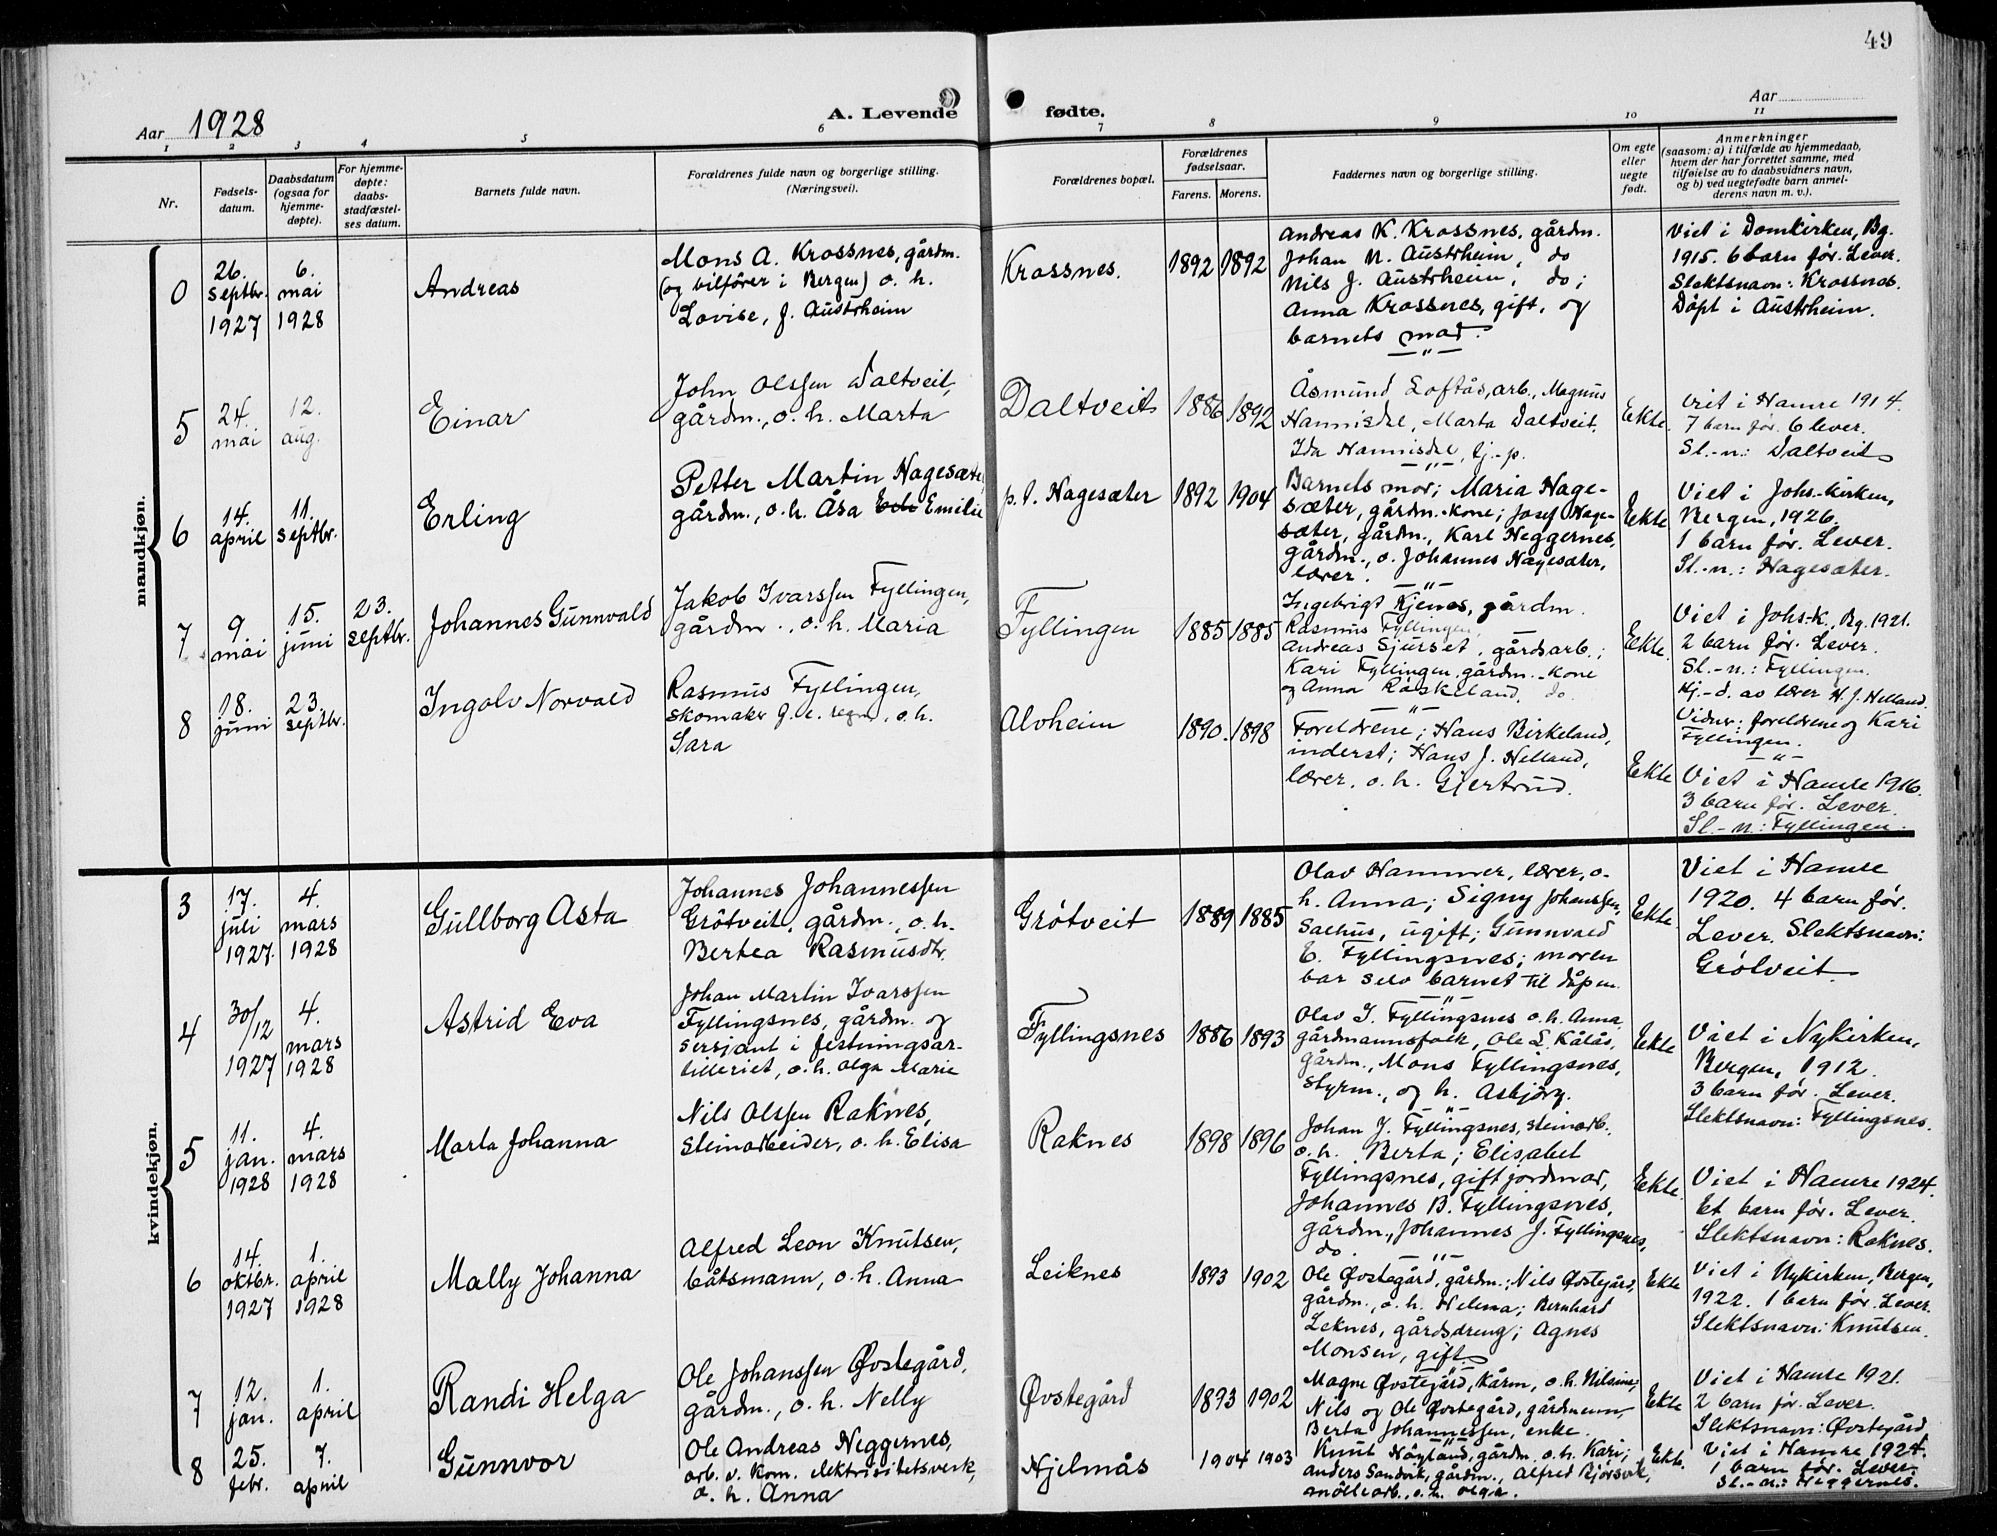 49
Aar 1928
A. Levende fødte.
Aar
1 2 3 4 5 6 7 8 9 10 11
Nr.
Fødsels-
datum.
Daabsdatum
(ogsaa for
hjemme-
døpte).
For hjemme-
døpte:
daabs-
stadfæstel-
ses datum.
Barnets fulde navn.
Forældrenes fulde navn og borgerlige stilling.
(Næringsvei).
Forældrenes bopæl.
Forældrenes
fødselsaar.
Farens. Morens.
Faddernes navn og borgerlige stilling.
Om egte
eller
uegte
født.
Anmerkninger
(saasom: a) i tilfælde av hjemmedaab,
hvem der har forrettet samme, med
tilføielse av to daabsvidners navn,
og b) ved uegtefødte barn anmel-
derens navn m. v.).
mandkjøn.
0
26.
septbr.
1927
6.
mai
1928
Andreas
Mons A. Krossnes, gårdm.
(og bilfører i Bergen) o. h.
Lovise, f. Austrheim
Krossnes.
1892 1892
Andreas K. Krossnes, gårdm.
Johan N. Austrheim, do
Nils J. Austrheim, do;
Anna Krossnes, gift, og
barnets mor.
Viet i Domkirken, Bg.
1915. 6 barn før. Lever.
Slektsnavn: Krossnes.
Døpt i Austrheim.
5
24.
mai
12.
aug.
Einar
John Olssen Daltveit,
gårdm., o. h. Marta
Daltveit
1886 1892
Åsmund Loftås, arb., Magnus
Hannisdal, Marta Daltveit.
Ida Hannisdal, tj.-p.
Ekte.
Viet i Hamre 1914.
7 barn før. 6 lever.
Sl.-n.: Daltveit
6
14.
april
11.
septbr.
Erling
Petter Martin Hagesæter,
gårdm., o. h. Åsa Emilie
p.t. Hagesæter
1892 1904
Barnets mor; Maria Hage-
sæter, gårdm.-kone; Josef Hage-
sæter, gårdm., Karl Heggernes,
gårdm., o. Johannes Hagesæter,
lærer.
Ekte
Viet i Johs-kirken,
Bergen, 1926.
1 barn før. Lever.
Sl.-n.: Hagesæter.
7
9
mai
15.
juni
23.
septbr.
Johannes Gunnvald
Jakob Ivarssen Fyllingen,
gårdm., o. h. Maria
Fyllingen
1885 1885
Ingebrigt Kjenes, gårdm.
Rasmus Fyllingen, —
Andreas Sjurset, gårdsarb.;
Kari Fyllingen, gårdm.-kone
og Anna Røskeland, do.
Ekte.
Viet i Johs-k., Bg. 1921.
2 barn før. Lever.
Sl.-n.: Fyllingen.
Hj.-d. av lærer H. J. Helland.
Vidner: foreldrene og Kari
Fyllingen.
8
18.
juni
23.
septbr.
Ingolv Norvald
Rasmus Fyllingen,
skomaker o. h.
Sara
Alvheim
1890. 1898
Foreldrene; Hans Birkeland,
inderst; Hans J. Helland,
lærer, o. h. Gjertrud.
Ekte
Viet i Hamre 1916.
3 barn før. Lever.
Sl.-n.: Fyllingen.
kvindekjøn.
3
17.
juli
1927.
4.
mars
1928
Gullborg Asta
Johannes Johannessen
Grøtveit, gårdm., o. h.
Bertea Rasmusdtr.
Grøtveit
1889 1885
Olav Hammer, lærer, o.
h. Anna; Signy Johanssen,
Salhus, ugift; Gunnvald
E. Fyllingsnes; moren
bar selv barnet til dåpen.
Ekte.
Viet i Hamre
1920. 4 barn før.
Lever. Slektsnavn:
Grøtveit
4
30/12
1927
4.
mars
1928
Astrid Eva
Johan Martin Ivarssen
Fyllingsnes, gårdm. og
sersjant i festningsar-
tilleriet, o. h. Olga Marie
Fyllingsnes
1886 1893
Olav I. Fyllingsnes o. h. Anna,
gårdmannsfolk, Ole L. Kålås,
gårdm., Mons Fyllingsnes,
styrm., og h. Asbjørg.
Ekte
Viet i Nykirken,
Bergen, 1912.
3 barn før. Lever.
Slektsnavn: Fyllingsnes.
5
11.
jan.
1928
4.
mars
1928
Marta Johanna
Nils Olssen Raknes,
steinarbeider, o. h. Elisa
Raknes
1898 1896
Johan J. Fyllingsnes, steinarb.
o. h. Berta; Elisabet
Fyllingsnes, gift jordmor,
Johannes B. Fyllingsnes,
gårdm., Johannes J. Fyllingsnes,
do.
Ekte.
Viet i Hamre 1924.
Et barn før. Lever.
Slektsnavn: Raknes.
6
14.
oktbr.
1927
1.
april
1928
Mally Johanna
Alfred Leon Knutsen,
båtsmann, o. h. Anna
Leiknes
1893 1902
Ole Øvstegård, gårdm.; Nils Øvstegård,
gårdm., o. h. Helena; Bernhard
Leknes, gårdsdreng; Agnes
Monsen, gift.
Ekte
Viet i Nykirken, Bergen,
1922. 1 barn før. Lever.
Slektsnavn: Knutsen.
7
12.
jan.
1.
april
Randi Helga
Ole Johanssen Øvstegård,
gårdm., o. h. Nelly
Øvstegård
1893 1902
Magne Øvstegård, kårm., o. h. Nilsine;
Nils og Ole Øvstegård, gårdmenn,
Berta Johannessen, enke.
Ekte
Viet i Hamre 1921.
2 barn før. Lever.
Slektsnavn: Øvstegård
8
25.
febr.
7.
april
Gunnvor
Ole Andreas Heggernes,
arb. v. kom. elektrisitetsverk,
o. h. Anna
Hjelmås
1904 1903
Knut Høyland, gårdm. o. h. Kari;
Anders Sandvik, gårdm., Alfred Bjørsvik,
møllearb., o. h. Olga.
Ekte.
Viet i Hamre 1924.
1 barn før. Lever.
Sl.-n.: Heggernes.